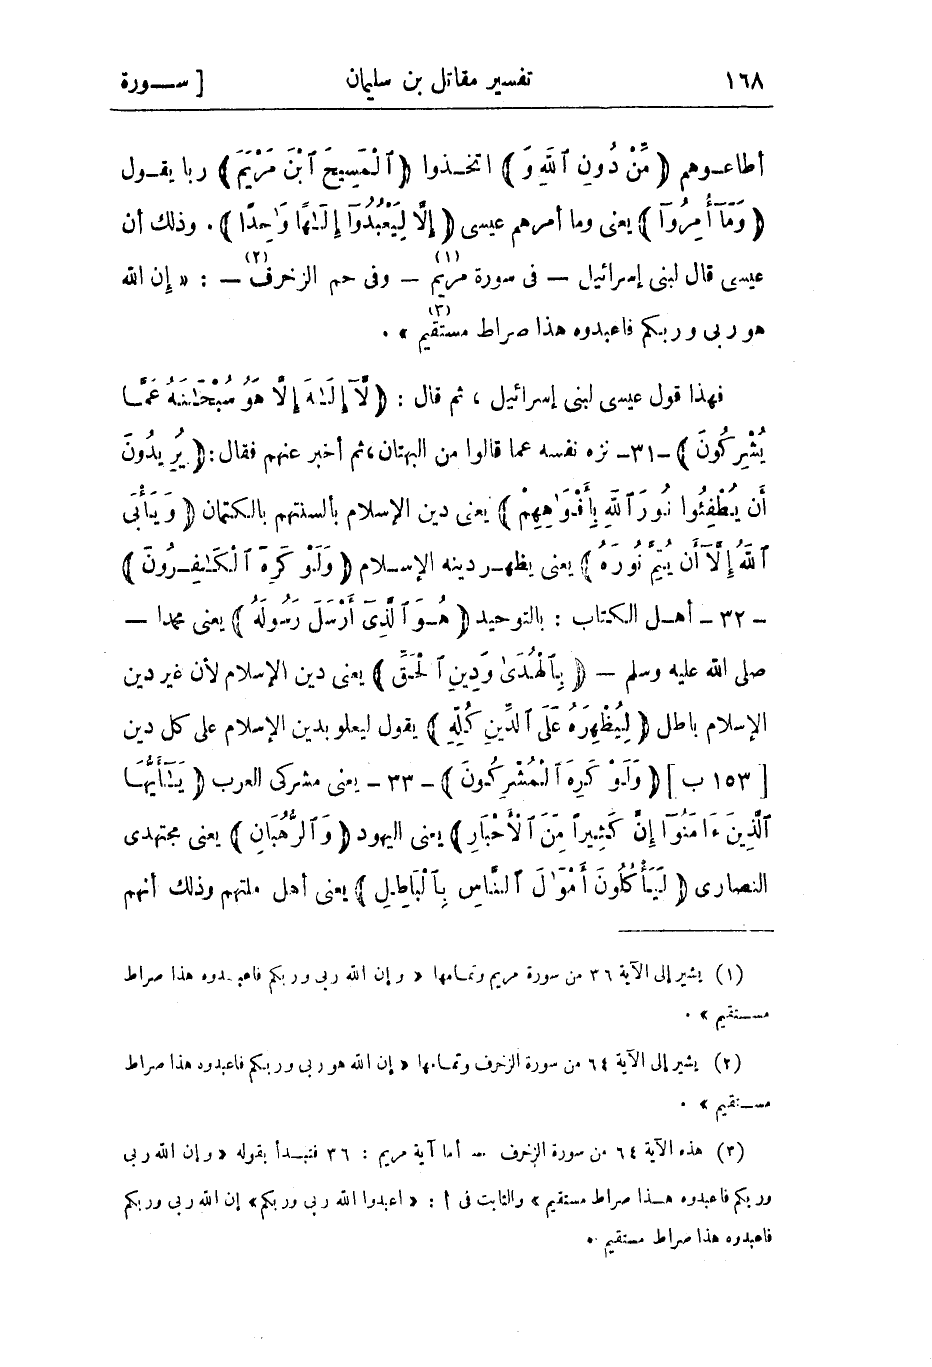 ١٦٨ تفسير مقاتل بن سليمان [ ســورة
أطاعـوهم ﴿ مِّنْ دُونِ ٱللَّهِ وَ ﴾ اتخـذوا ﴿ ٱلْمَسِيحَ ٱبْنَ مَرْيَمَ ﴾ ربا يقـول
﴿ وَمَآ أُمِرُوٓا ﴾ يعنى وما أمرهم عيسى ﴿ إِلَّا لِيَعْبُدُوٓا إِلَـٰهًا وَ ٰحِدًا ﴾ . وذلك أن
عيسى قال لبنى إسرائيل — فى سورة مريم (١) — وفى حم الزخرف (٢) — : « إن الله
هو ربى وربكم فاعبدوه هذا صراط مستقيم (٣) » .
فهذا قول عيسى لبنى إسرائيل ، ثم قال : ﴿ لَّآ إِلَـٰهَ إِلَّا هُوَ سُبْحَـٰنَهُ عَمَّـا
يُشْرِكُونَ ﴾ -٣١- نزه نفسه عما قالوا من البهتان ، ثم أخبر عنهم فقال : ﴿ يُرِيدُونَ
أَن يُطْفِئُوا نُورَ ٱللَّهِ بِأَفْوَ ٰهِهِمْ ﴾ يعنى دين الإسلام بألسنتهم بالكتمان ﴿ وَيَأْبَى
ٱللَّهُ إِلَّآ أَن يُتِمَّ نُورَهُ ﴾ يعنى يظهـر دينه الإسـلام ﴿ وَلَوْ كَرِهَ ٱلْكَـٰفِـرُونَ ﴾
- ٣٢ - أهـل الكتاب : بالتوحيد ﴿ هُـوَ ٱلَّذِىٓ أَرْسَلَ رَسُولَهُ ﴾ يعنى محمدا —
صلى الله عليه وسلم — ﴿ بِٱلْهُدَىٰ وَدِينِ ٱلْحَقِّ ﴾ يعنى دين الإسلام لأن غير دين
الإسلام باطل ﴿ لِيُظْهِرَهُ عَلَى ٱلدِّينِ كُلِّهِ ﴾ يقول ليعلو بدين الإسلام على كل دين
[ ١٥٣ ب ] ﴿ وَلَوْ كَرِهَ ٱلْمُشْرِكُونَ ﴾ - ٣٣ - يعنى مشركى العرب ﴿ يَـٰٓأَيُّهَـا
ٱلَّذِينَ ءَامَنُوٓا إِنَّ كَثِيراً مِّنَ ٱلْأَحْبَارِ ﴾ يعنى اليهود ﴿ وَٱلرُّهْبَانِ ﴾ يعنى مجتهدى
النصارى ﴿ لَيَأْكُلُونَ أَمْوَ ٰلَ ٱلنَّاسِ بِٱلْبَاطِلِ ﴾ يعنى أهل ملتهم وذلك أنهم
(١) يشير إلى الآية ٣٦ من سورة مريم وتمـامها « وإن الله ربى وربكم فاعبـدوه هذا صراط
مســتقيم » .
(٢) يشير إلى الآية ٦٤ من سورة الزخرف وتمـامها « إن الله هو ربى وربـكم فاعبدوه هذا صراط
مســتقيم » .
(٣) هذه الآية ٦٤ من سورة الزخرف — أما آية مريم : ٣٦ فتبـدأ بقوله « وإن الله ربى
وربكم فاعبدوه هــذا صراط مستقيم » والثابت فى أ : « اعبدوا الله ربى وربكم » إن الله ربى وربكم
فاعبدوه هذا صراط مستقيم .